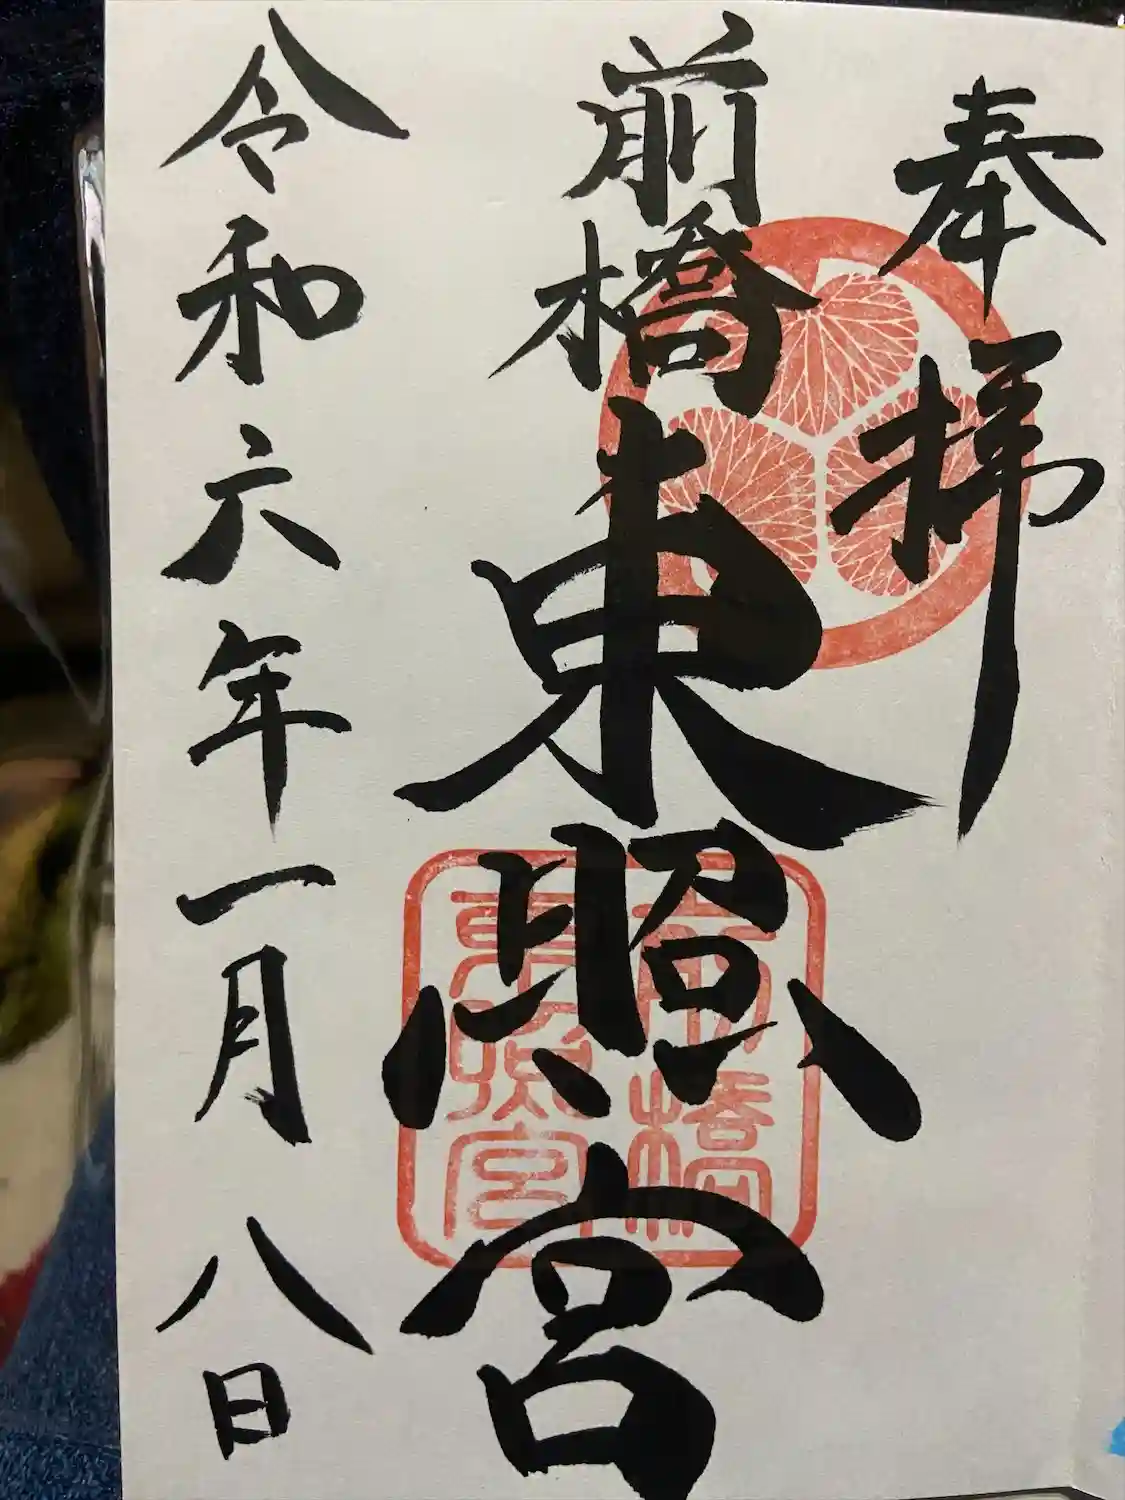 奉拝
前橋東照宮
前橋
東照宮
令和六年一月八日